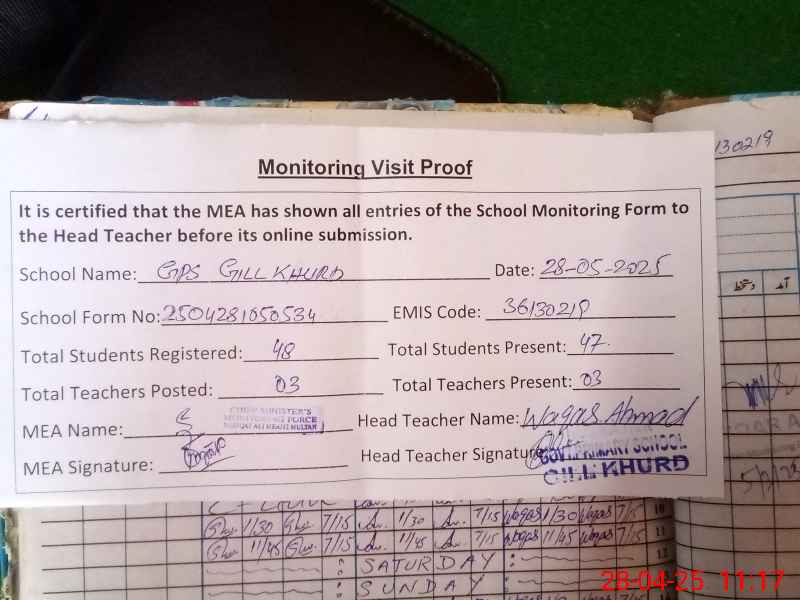 130219
Monitoring Visit Proof
It is certified that the MEA has shown all entries of the School Monitoring Form to
the Head Teacher before its online submission.
School Name: GPS GILL KHURD Date: 28-05-2025
School Form No: 2504281050534 EMIS Code: 36130219
Total Students Registered: 48 Total Students Present: 47
Total Teachers Posted: 03 Total Teachers Present: 03
MEA Name: CHIEF MINISTER'S
MONITORING FORCE
Head Teacher Name: Waqas Ahmad
MEA Signature: Head Teacher Signature
GOVT. PRIMARY SCHOOL
GILL KHURD
آمد دستخط
1/30 7/15 1/30 7/15 Waqas 1/30 Waqas 7/15 10
11/45 7/15 11/45 7/15 Waqas 11/45 Waqas 7/15 11
SATURDAY 12
SUNDAY
28-04-25 11:17